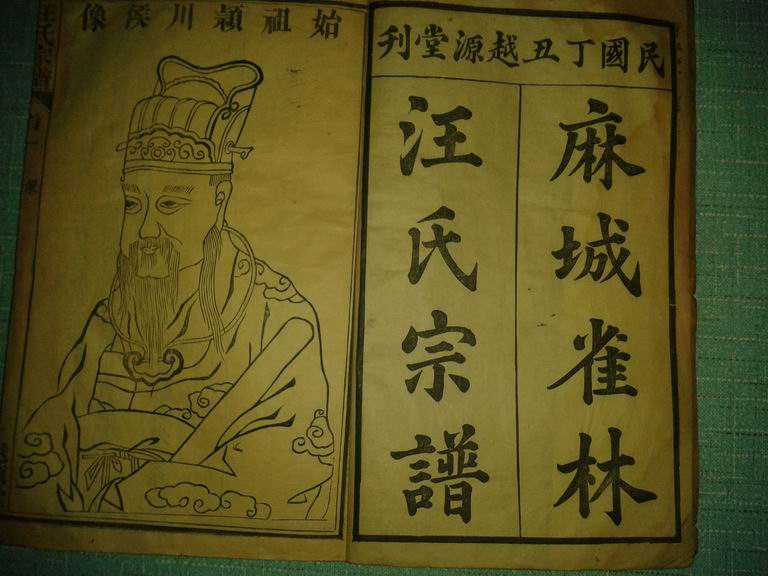 民國丁丑越源堂刋
麻城雀林
汪氏宗譜
始祖穎川侯像
汪氏宗譜